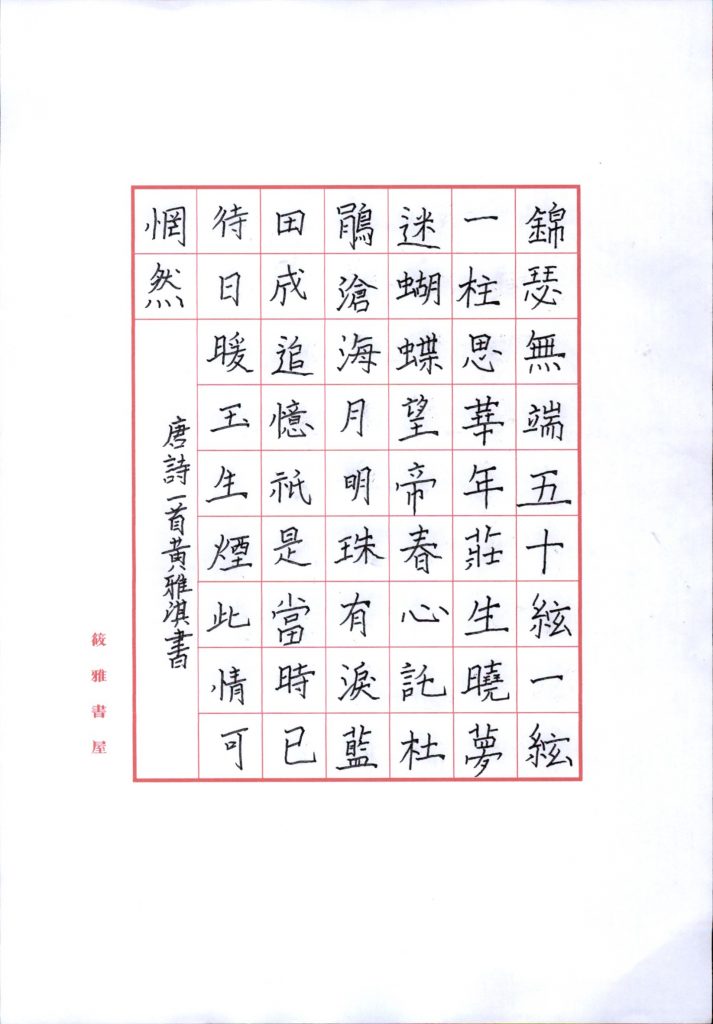 錦瑟無端五十絃一絃
一柱思華年莊生曉夢
迷蝴蝶望帝春心託杜
鵑滄海月明珠有淚藍
田成追憶祇是當時已
待日暖玉生煙此情可
惘然
唐詩一首黃雅淇書
筱雅書屋